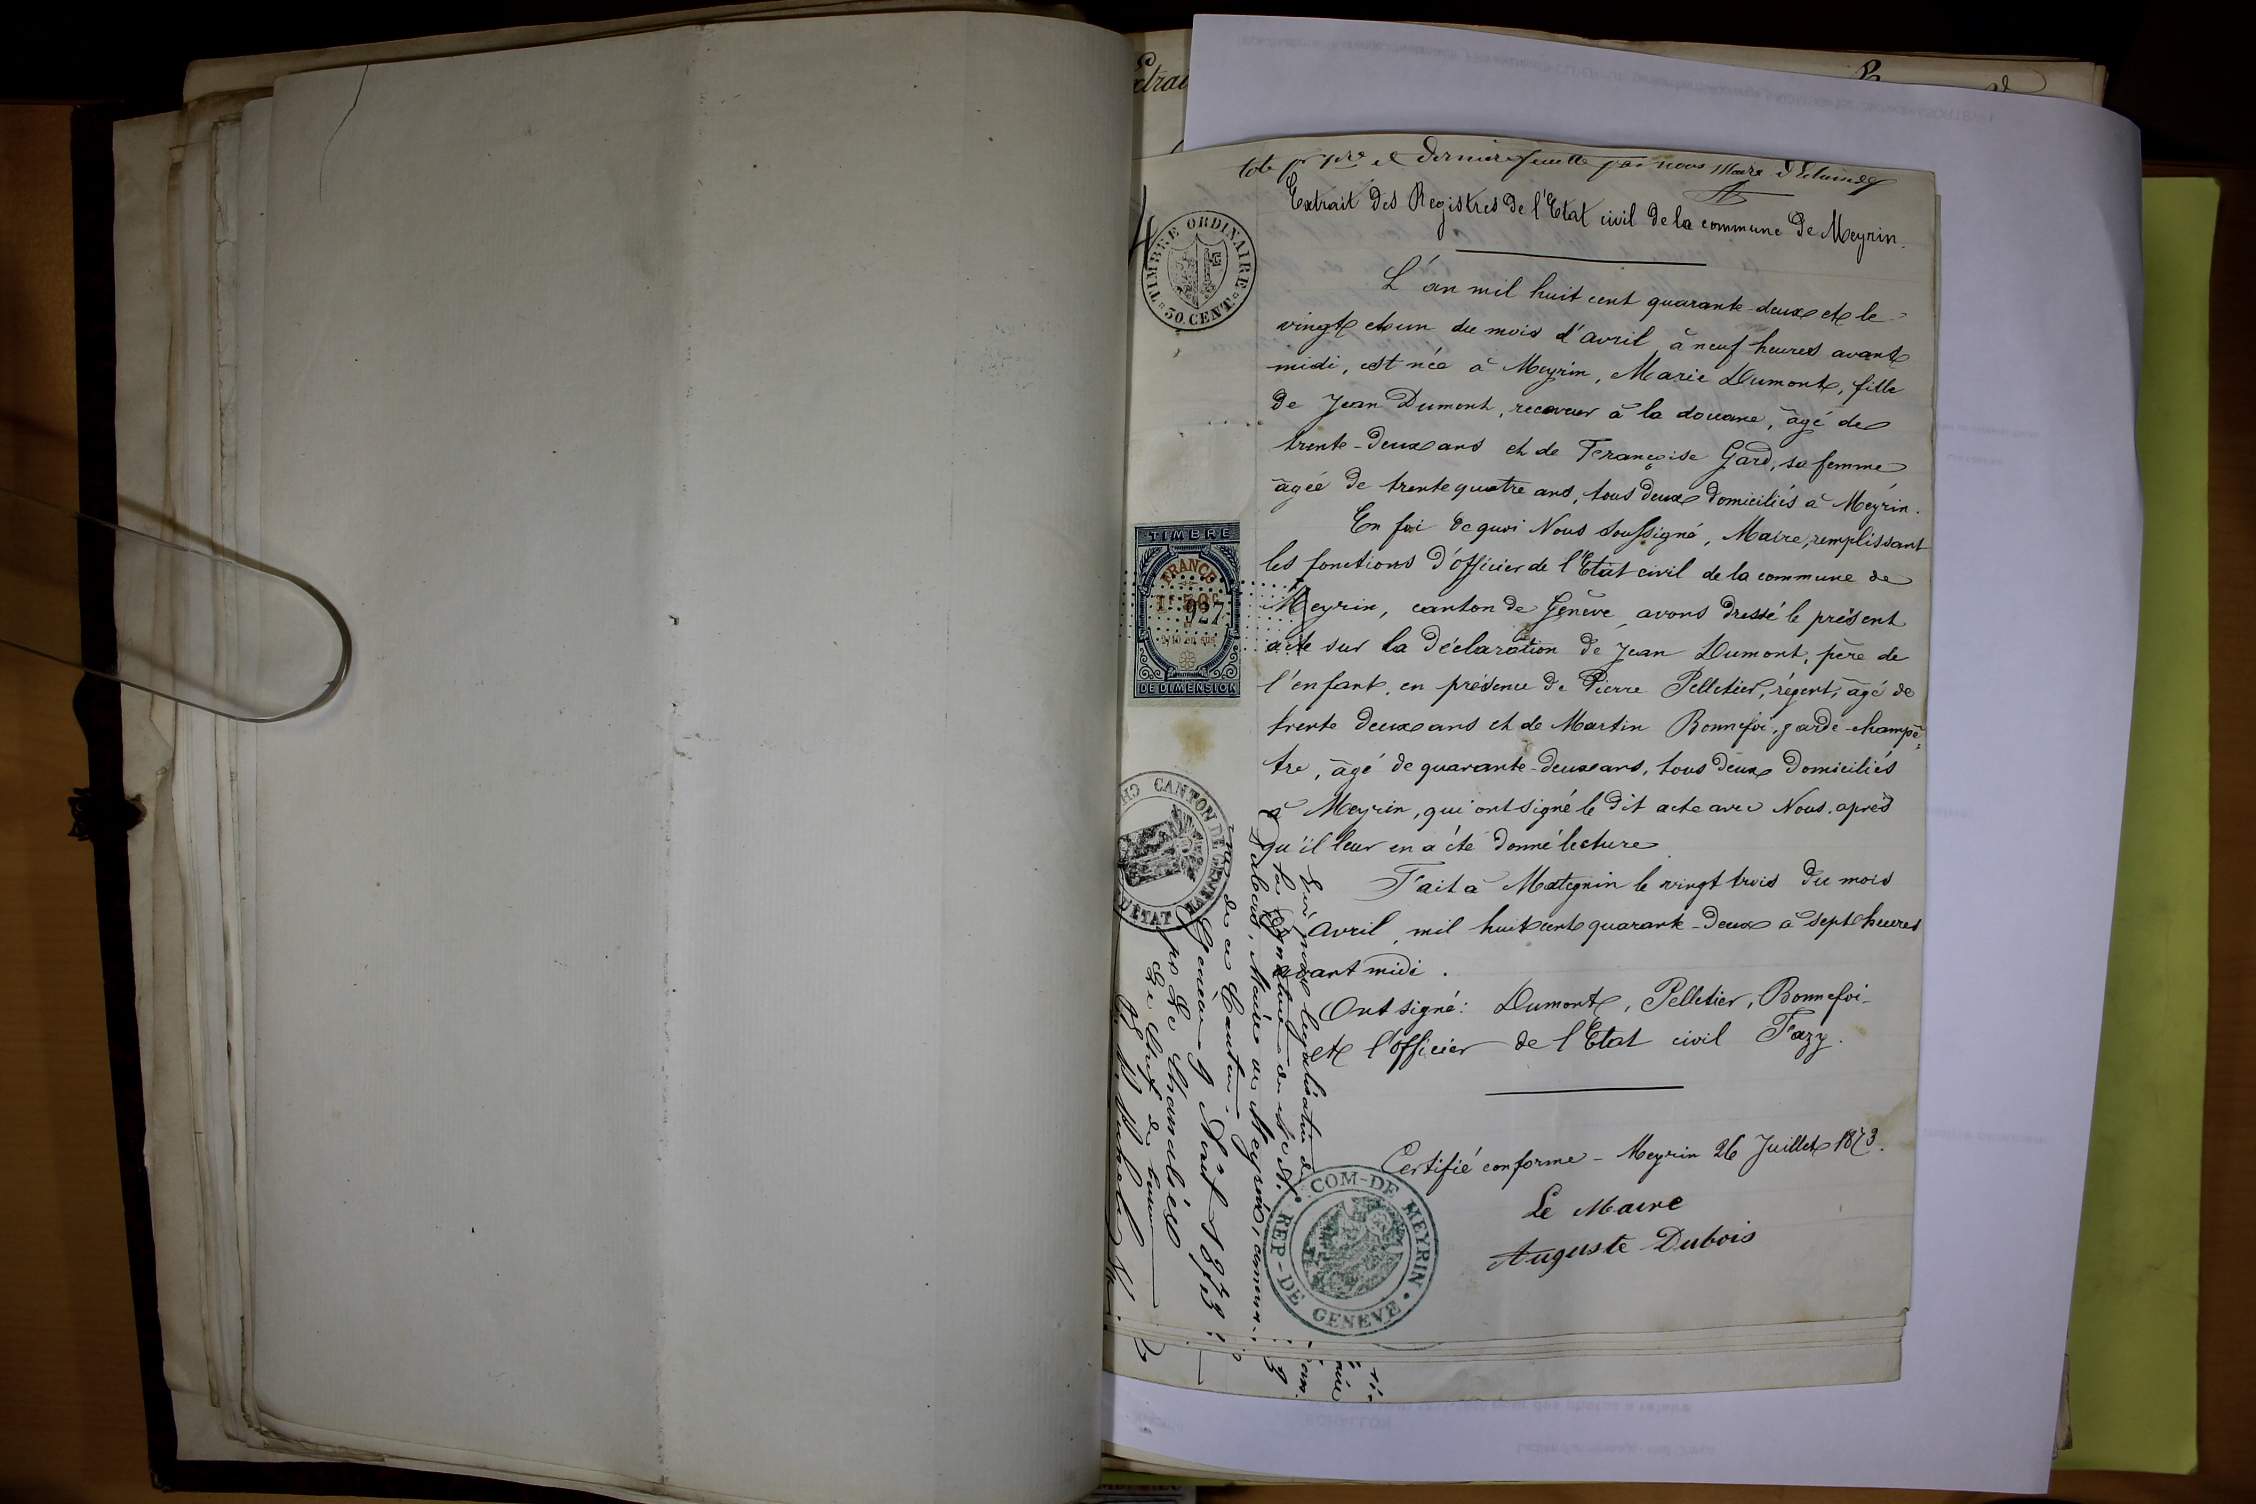 Extrait des Registres de l'Etat civil de la commune de Meyrin.
L'an mil huit cent quarante-deux et le
vingt et un du mois d'avril, à neuf heures avant
midi, est née à Meyrin, Marie Dumont, fille
de Jean Dumont, receveur à la douane, âgé de
trente-deux ans et de Françoise Gard, sa femme
âgée de trente quatre ans, tous deux domiciliés à Meyrin.
En foi de quoi Nous soussigné, Maire, remplissant
les fonctions d'officier de l'Etat civil de la commune de
Meyrin, canton de Genève, avons dressé le présent
acte sur la déclaration de Jean Dumont, père de
l'enfant, en présence de Pierre Pelletier, régent, âgé de
trente deux ans et de Martin Bonnefoi, garde-champê-
tre, âgé de quarante-deux ans, tous deux domiciliés
à Meyrin, qui ont signé le dit acte avec Nous, après
qu'il leur en a été donné lecture
Fait à Mategnin le vingt trois du mois
avril, mil huit cent quarante-deux à sept heures
avant midi.
Ont signé: Dumont, Pelletier, Bonnefoi
et l'officier de l'Etat civil Fazy.
Certifié conforme - Meyrin 26 Juillet 1873.
Le Maire
Auguste Dubois
TIMBRE ORDINAIRE
50 CENT.
TIMBRE
FRANCE
927
DE DIMENSION
CANTON DE GENEVE
COM-DE MEYRIN
REP-DE GENEVE
Maire de Meyrin
de ce Canton.
Genève 9 Août 1873
Le Chef de bureau